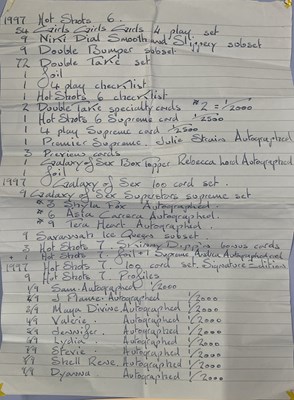 1997 Hot Shots 6.
54 Girls Girls Girls 4 play set
9 Nikki Dial Smooth and Slippery subset
9 Double Bumper subset.
72 Double Take set
1 foil
1 4 play checklist
1 Hot Shots 6 checklist
2 Double Take specialty cards #2 = 1/2000
1 Hot Shots 6 Supreme card 1/2500
1 4 play Supreme card 1/2500
1 Premier Supreme. Julie Strain Autographed
3 Previous cards
1 Galaxy of Sex Box topper Rebecca Lord Autographed
1 foil
1997 Galaxy of Sex 100 card set.
9 Galaxy of Sex Superstars supreme set
#3 Shyla Fox Autographed.
#6 Asia Carrera Autographed.
#9 Tera Heart Autographed.
9 Savannah Ice Queens subset.
3 Hot Shots 7. bonus cards
1 Hot Shots 7. foil + 1 Supreme Autographed
1997 Hot Shots 7. 100 card set. Signature Editions
9 Hot Shots 7 Profiles
1/9 Sam. Autographed 1/2000
2/9 J Flames Autographed 1/2000
3/9 Maya Divine Autographed 1/2000
4/9 Valerie. Autographed 1/2000
5/9 Jennifer. Autographed 1/2000
6/9 Lydia. Autographed 1/2000
7/9 Stevie. Autographed 1/2000
8/9 Shell Rene. Autographed 1/2000
9/9 Dyanna Autographed 1/2000